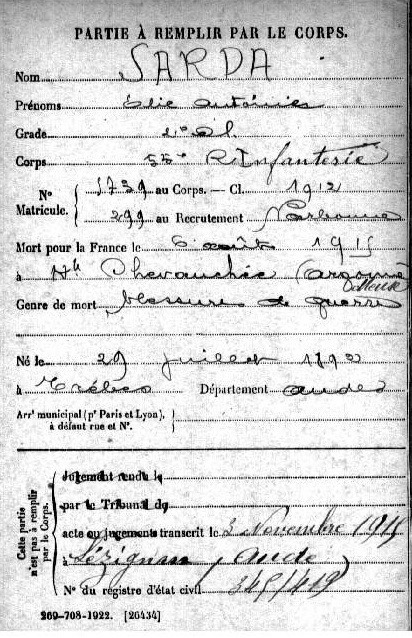 PARTIE À REMPLIR PAR LE CORPS.
Nom SARDA
Prénoms Elie Antoine
Grade 2e Cl.
Corps 55e R Infanterie
No Matricule. 1739 au Corps. — Cl. 1912
299 au Recrutement Narbonne
Mort pour la France le 6 août 1915
à Hte Chevauchée (Argonne
Meuse
Genre de mort blessures de guerre
Né le 29 juillet 1892
à Trèbes Département Aude
Arrt municipal (pr Paris et Lyon),
à défaut rue et N°.
Cette partie n'est pas à remplir par le Corps.
Jugement rendu le
par le Tribunal de
acte ou jugement transcrit le 3 Novembre 1915
à Lézignan (Aude)
N° du registre d'état civil 345/419
269-708-1922. [26434]